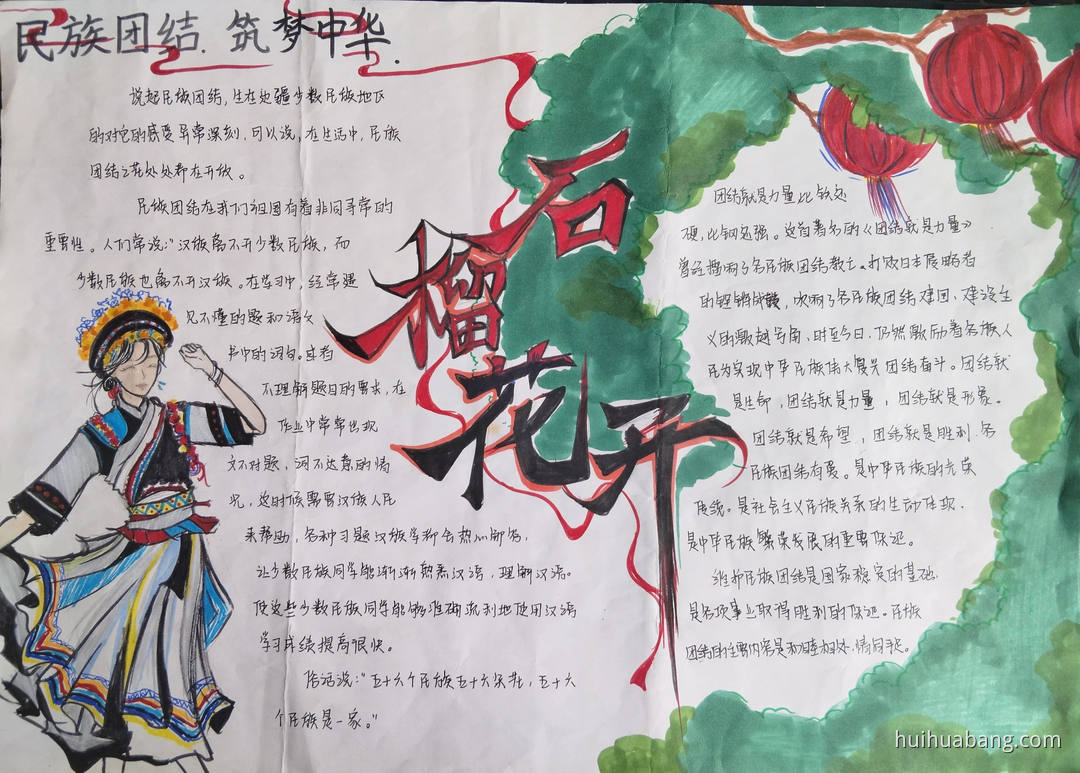 民族团结.筑梦中华.
说起民族团结,生在处疆少数民族地区
的对它的感受异常深刻,可以说,在生活中,民族
团结之花处处都在开放。
民族团结在我们祖国有着非同寻常的
重要性。人们常说:"汉族离不开少数民族,而
少数民族也离不开汉族。在学习中,经常遇
见不懂的题和语文
书中的词句。或者
不理解题目的要求,在
作业中常常出现
文不对题,词不达意的情
况,这时候需要汉族人民
来帮助,各种习题汉族学称会热心解答,
让少数民族同学能渐渐熟悉汉语,理解汉语。
使这些少数民族同学能够准确流利地使用汉语
学习成绩提高很快。
俗话说:"五十六个民族五十六朵花,五十六
个民族是一家。"
石
榴
花
开
团结就是力量比铁还
硬,比钢还强。这首著名的《团结就是力量》
曾经擂响了各民族团结救亡。打败日本侵略者
的铿锵战鼓,吹响了各民族团结建国,建设主
义的激越号角,时至今日,仍然激励着各族人
民为实现中华民族伟大复兴团结奋斗。团结就
是生命,团结就是力量,团结就是形象。
团结就是希望,团结就是胜利.各
民族团结有爱。是中华民族的光荣
传统。是社会主义民族关系的生动体现.
是中华民族繁荣发展的重要保证。
维护民族团结是国家稳定的基础.
是各项事业取得胜利的保证。民族
团结的主要内容是和睦相处.情同手足。
huihuabang.com